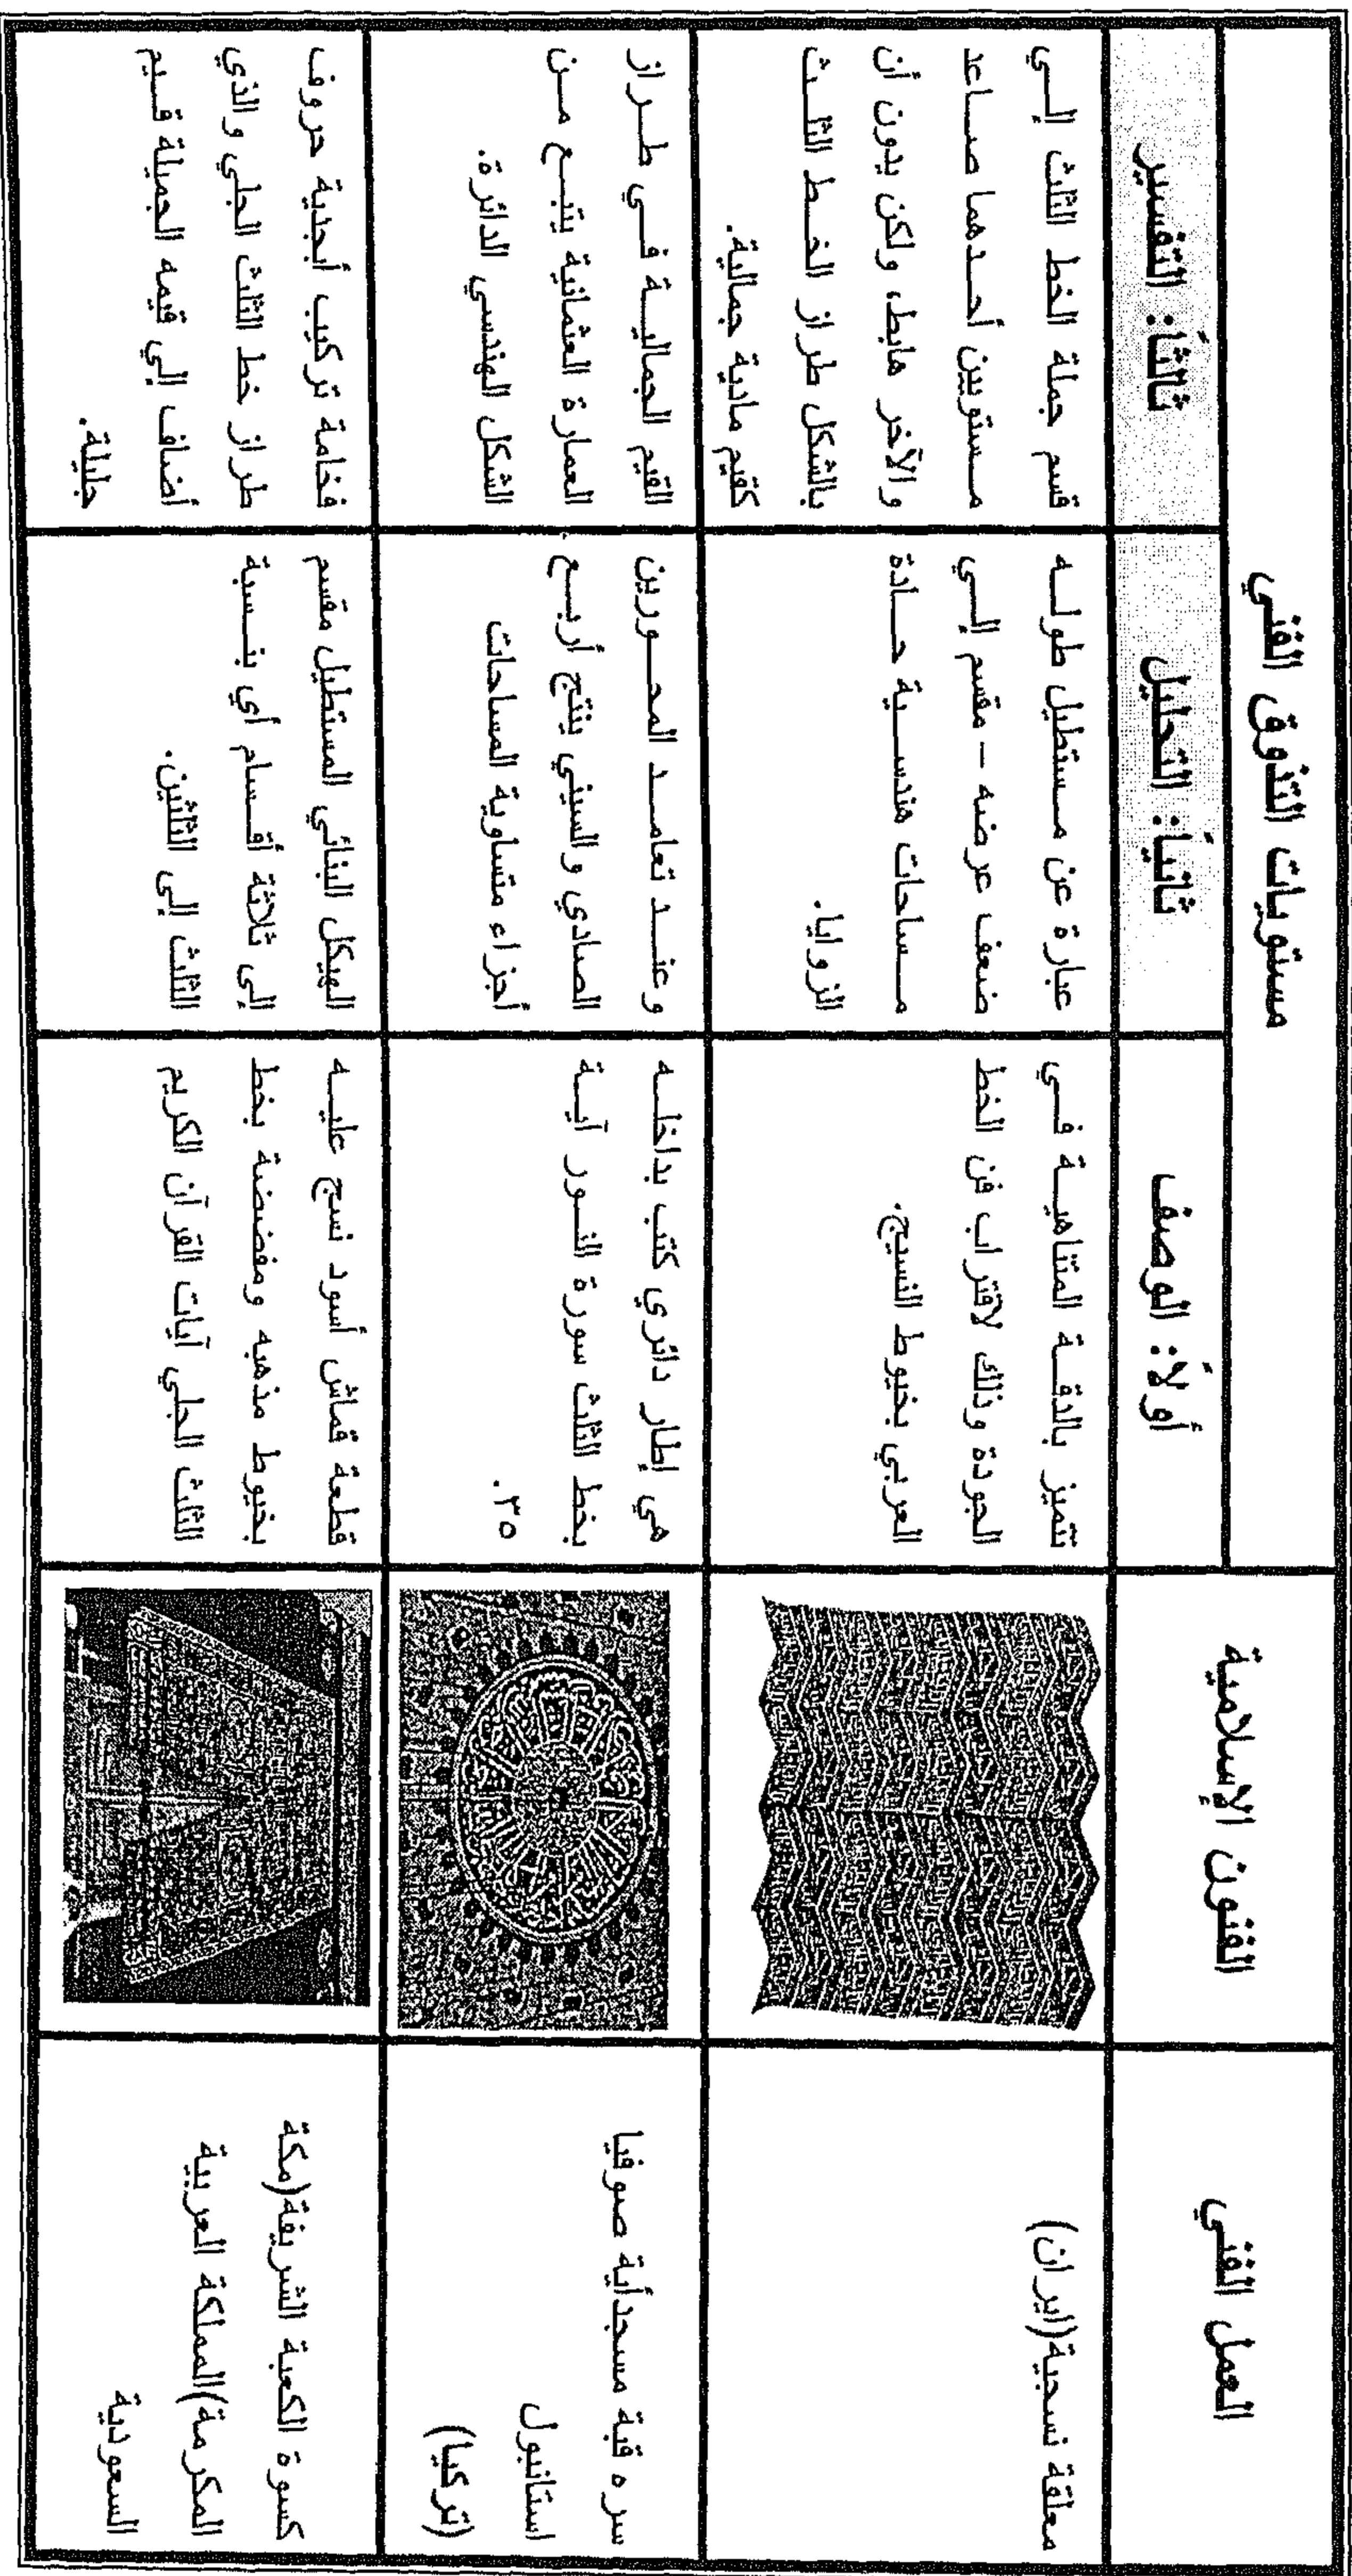 العمل الفني
الفنون الإسلامية
مستويات التذوق الفني
أولاً: الوصف
ثانياً: التحليل
ثالثاً: التفسير
معلقة نسجية(ايران)
تتميز بالدقة المتناهية في
الجودة وذلك لاقتراب فن الخط
العربي بخيوط النسيج.
عبارة عن مستطيل طوله
ضعف عرضه – مقسم إلي
مساحات هندسية حادة
الزوايا.
قسم جملة الخط الثلث إلي
مستويين أحدهما صاعد
والآخر هابط، ولكن بدون أن
بالشكل طراز الخط الثلث
كقيم مادية جمالية.
سره قبة مسجدأية صوفيا
استانبول
(تركيا)
هي إطار دائري كتب بداخله
بخط الثلث سورة النور آية
٣٥.
وعند تعامد المحورين
الصادي والسيني ينتج أربع
أجزاء متساوية المساحات
القيم الجمالية في طراز
العمارة العثمانية ينبع من
الشكل الهندسي الدائرة.
كسوة الكعبة الشريفة(مكة
المكرمة)المملكة العربية
السعودية
قطعة قماش أسود نسج عليه
بخيوط مذهبه ومفضضة بخط
الثلث الجلي آيات القرآن الكريم
الهيكل البنائي المستطيل مقسم
إلى ثلاثة أقسام أي بنسبة
الثلث إلى الثلثين.
فخامة تركيب أبجدية حروف
طراز خط الثلث الجلي والذي
أضاف إلي قيمه الجميلة قيم
جليلة.